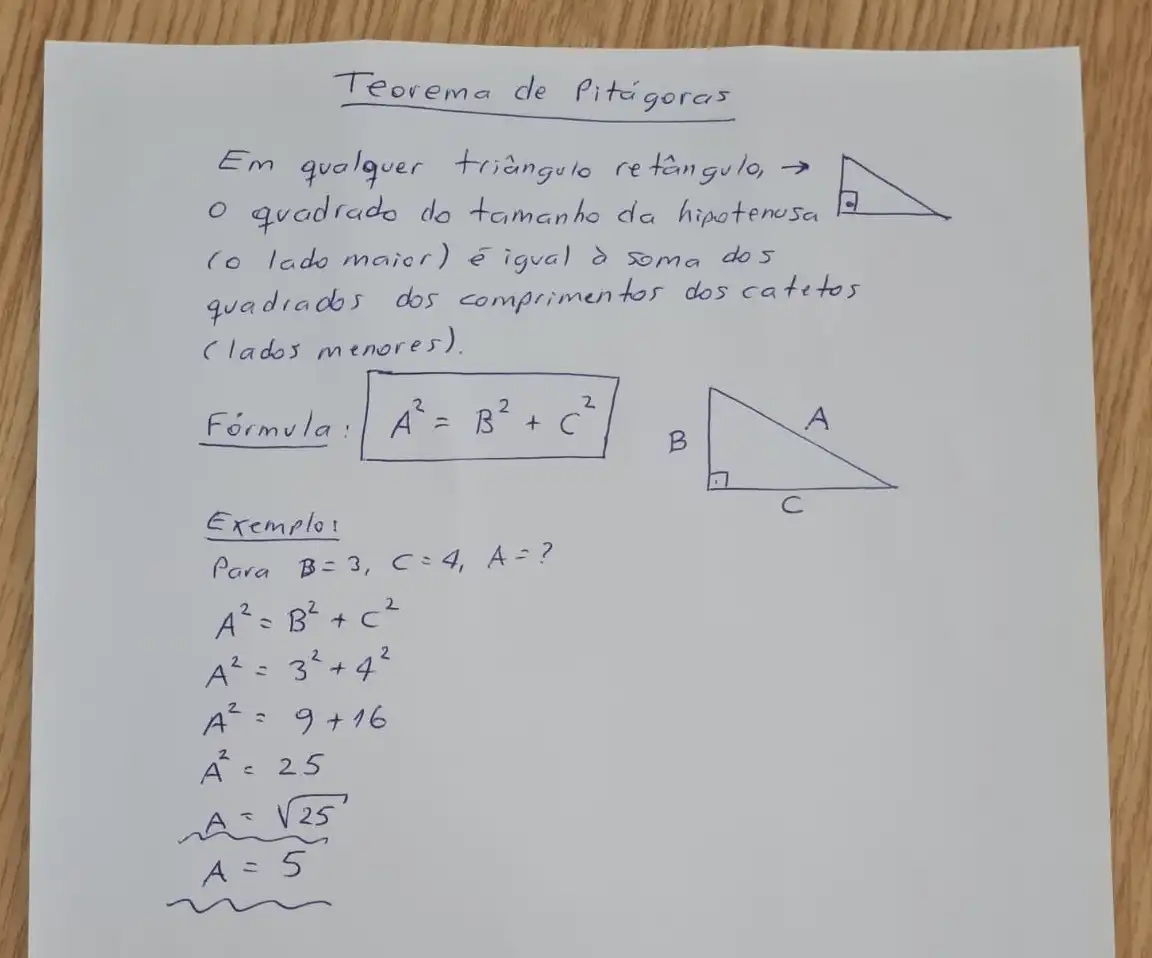 Teorema de Pitágoras
Em qualquer triângulo retângulo, →
o quadrado do tamanho da hipotenusa
(o lado maior) é igual à soma dos
quadrados dos comprimentos dos catetos
(lados menores).
Fórmula: A² = B² + C²
A
B
C
Exemplo:
Para B = 3, C = 4, A = ?
A² = B² + C²
A² = 3² + 4²
A² = 9 + 16
A² = 25
A = √25
A = 5